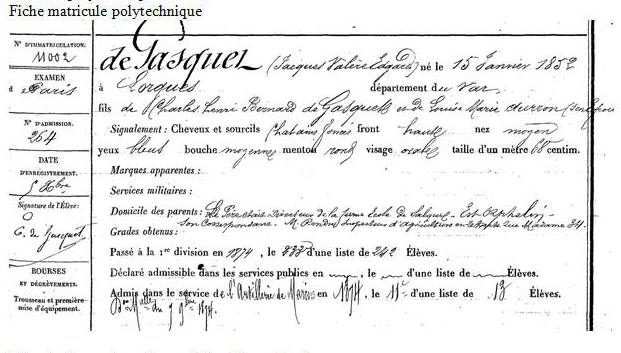 Fiche matricule polytechnique
N° D'IMMATRICULATION:
11002
EXAMEN
d Paris
N° D'ADMISSION.
264
DATE
D'ENREGISTREMENT.
5 Xbre
Signature de l'Élève:
C. de Gasquet
BOURSES
ET DÉGRÈVEMENTS.
Trousseau et première
mise d'équipement.
de Gasquet (Jacques Valère Edgard) né le 15 Janvier 1852
à Lorgues département du Var.
fils de Charles Henri Bernard de Gasquet et de Louise Marie
Signalement : Cheveux et sourcils Chatains foncés front haut nez moyen
yeux bleus bouche moyenne menton rond visage ovale taille d'un mètre 68 centim.
Marques apparentes :
Services militaires :
Domicile des parents : Le Père était Directeur de la ferme école de Salgues - Est Orphelin -
son Correspondant M. Inspecteur d'Agriculture en retraite Rue Madame 34.
Grades obtenus :
Passé à la 1re division en 1874, le d'une liste de 242 Élèves.
Déclaré admissible dans les services publics en , le d'une liste de Élèves.
Admis dans le service de l'Artillerie de Marine en 1874, le 11e d'une liste de 13 Élèves.
du 9 9bre 1874.